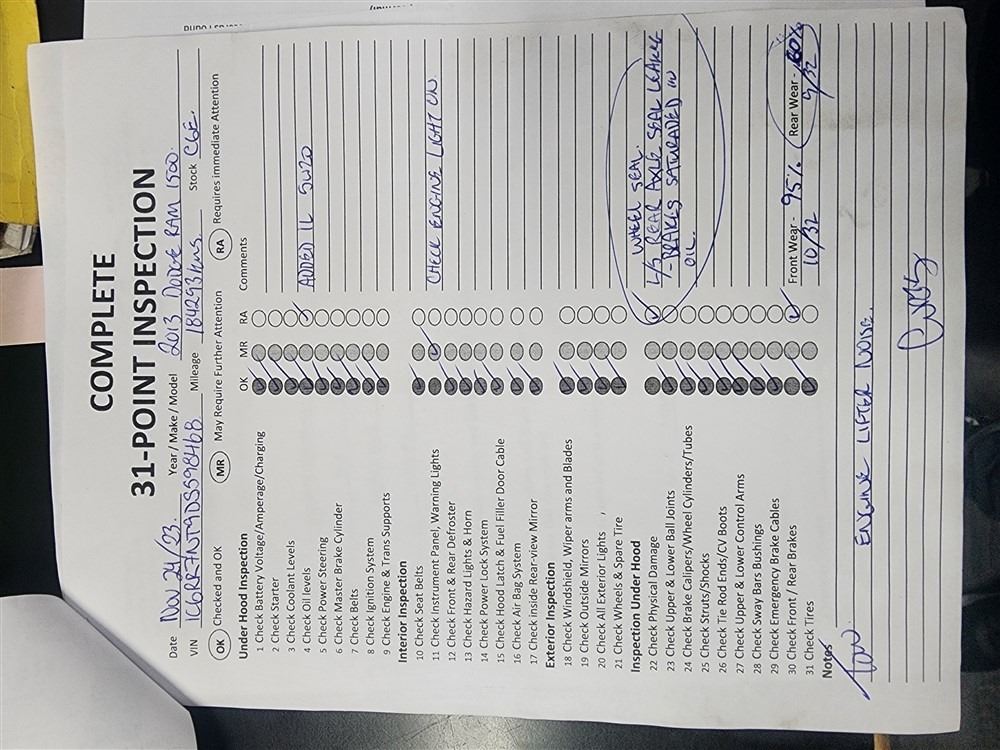 COMPLETE
31-POINT INSPECTION
Date Nov 24/23. Year / Make / Model 2013 DODGE RAM 1500.
VIN 1C6RR7NT9DS598468 Mileage 184293 kms. Stock C6E.
OK Checked and OK MR May Require Further Attention RA Requires immediate Attention
Under Hood Inspection OK MR RA Comments
1 Check Battery Voltage/Amperage/Charging
2 Check Starter
3 Check Coolant Levels
4 Check Oil levels ADDED 1L 5W20
5 Check Power Steering
6 Check Master Brake Cylinder
7 Check Belts
8 Check Ignition System
9 Check Engine & Trans Supports
Interior Inspection
10 Check Seat Belts
11 Check Instrument Panel, Warning Lights CHECK ENGINE LIGHT ON.
12 Check Front & Rear Defroster
13 Check Hazard Lights & Horn
14 Check Power Lock System
15 Check Hood Latch & Fuel Filler Door Cable
16 Check Air Bag System
17 Check Inside Rear-view Mirror
Exterior Inspection
18 Check Windshield, Wiper arms and Blades
19 Check Outside Mirrors
20 Check All Exterior Lights
21 Check Wheels & Spare Tire
Inspection Under Hood WHEEL SEAL.
22 Check Physical Damage L/S REAR AXLE SEAL LEAKING
23 Check Upper & Lower Ball Joints - BRAKES SATURADED IN
24 Check Brake Calipers/Wheel Cylinders/Tubes OIL.
25 Check Struts/Shocks
26 Check Tie Rod Ends/CV Boots
27 Check Upper & Lower Control Arms
28 Check Sway Bars Bushings
29 Check Emergency Brake Cables
30 Check Front / Rear Brakes Front Wear - 95% Rear Wear - 60%
31 Check Tires 10/32 9/32
Notes
ENGINE LIFTER NOISE.